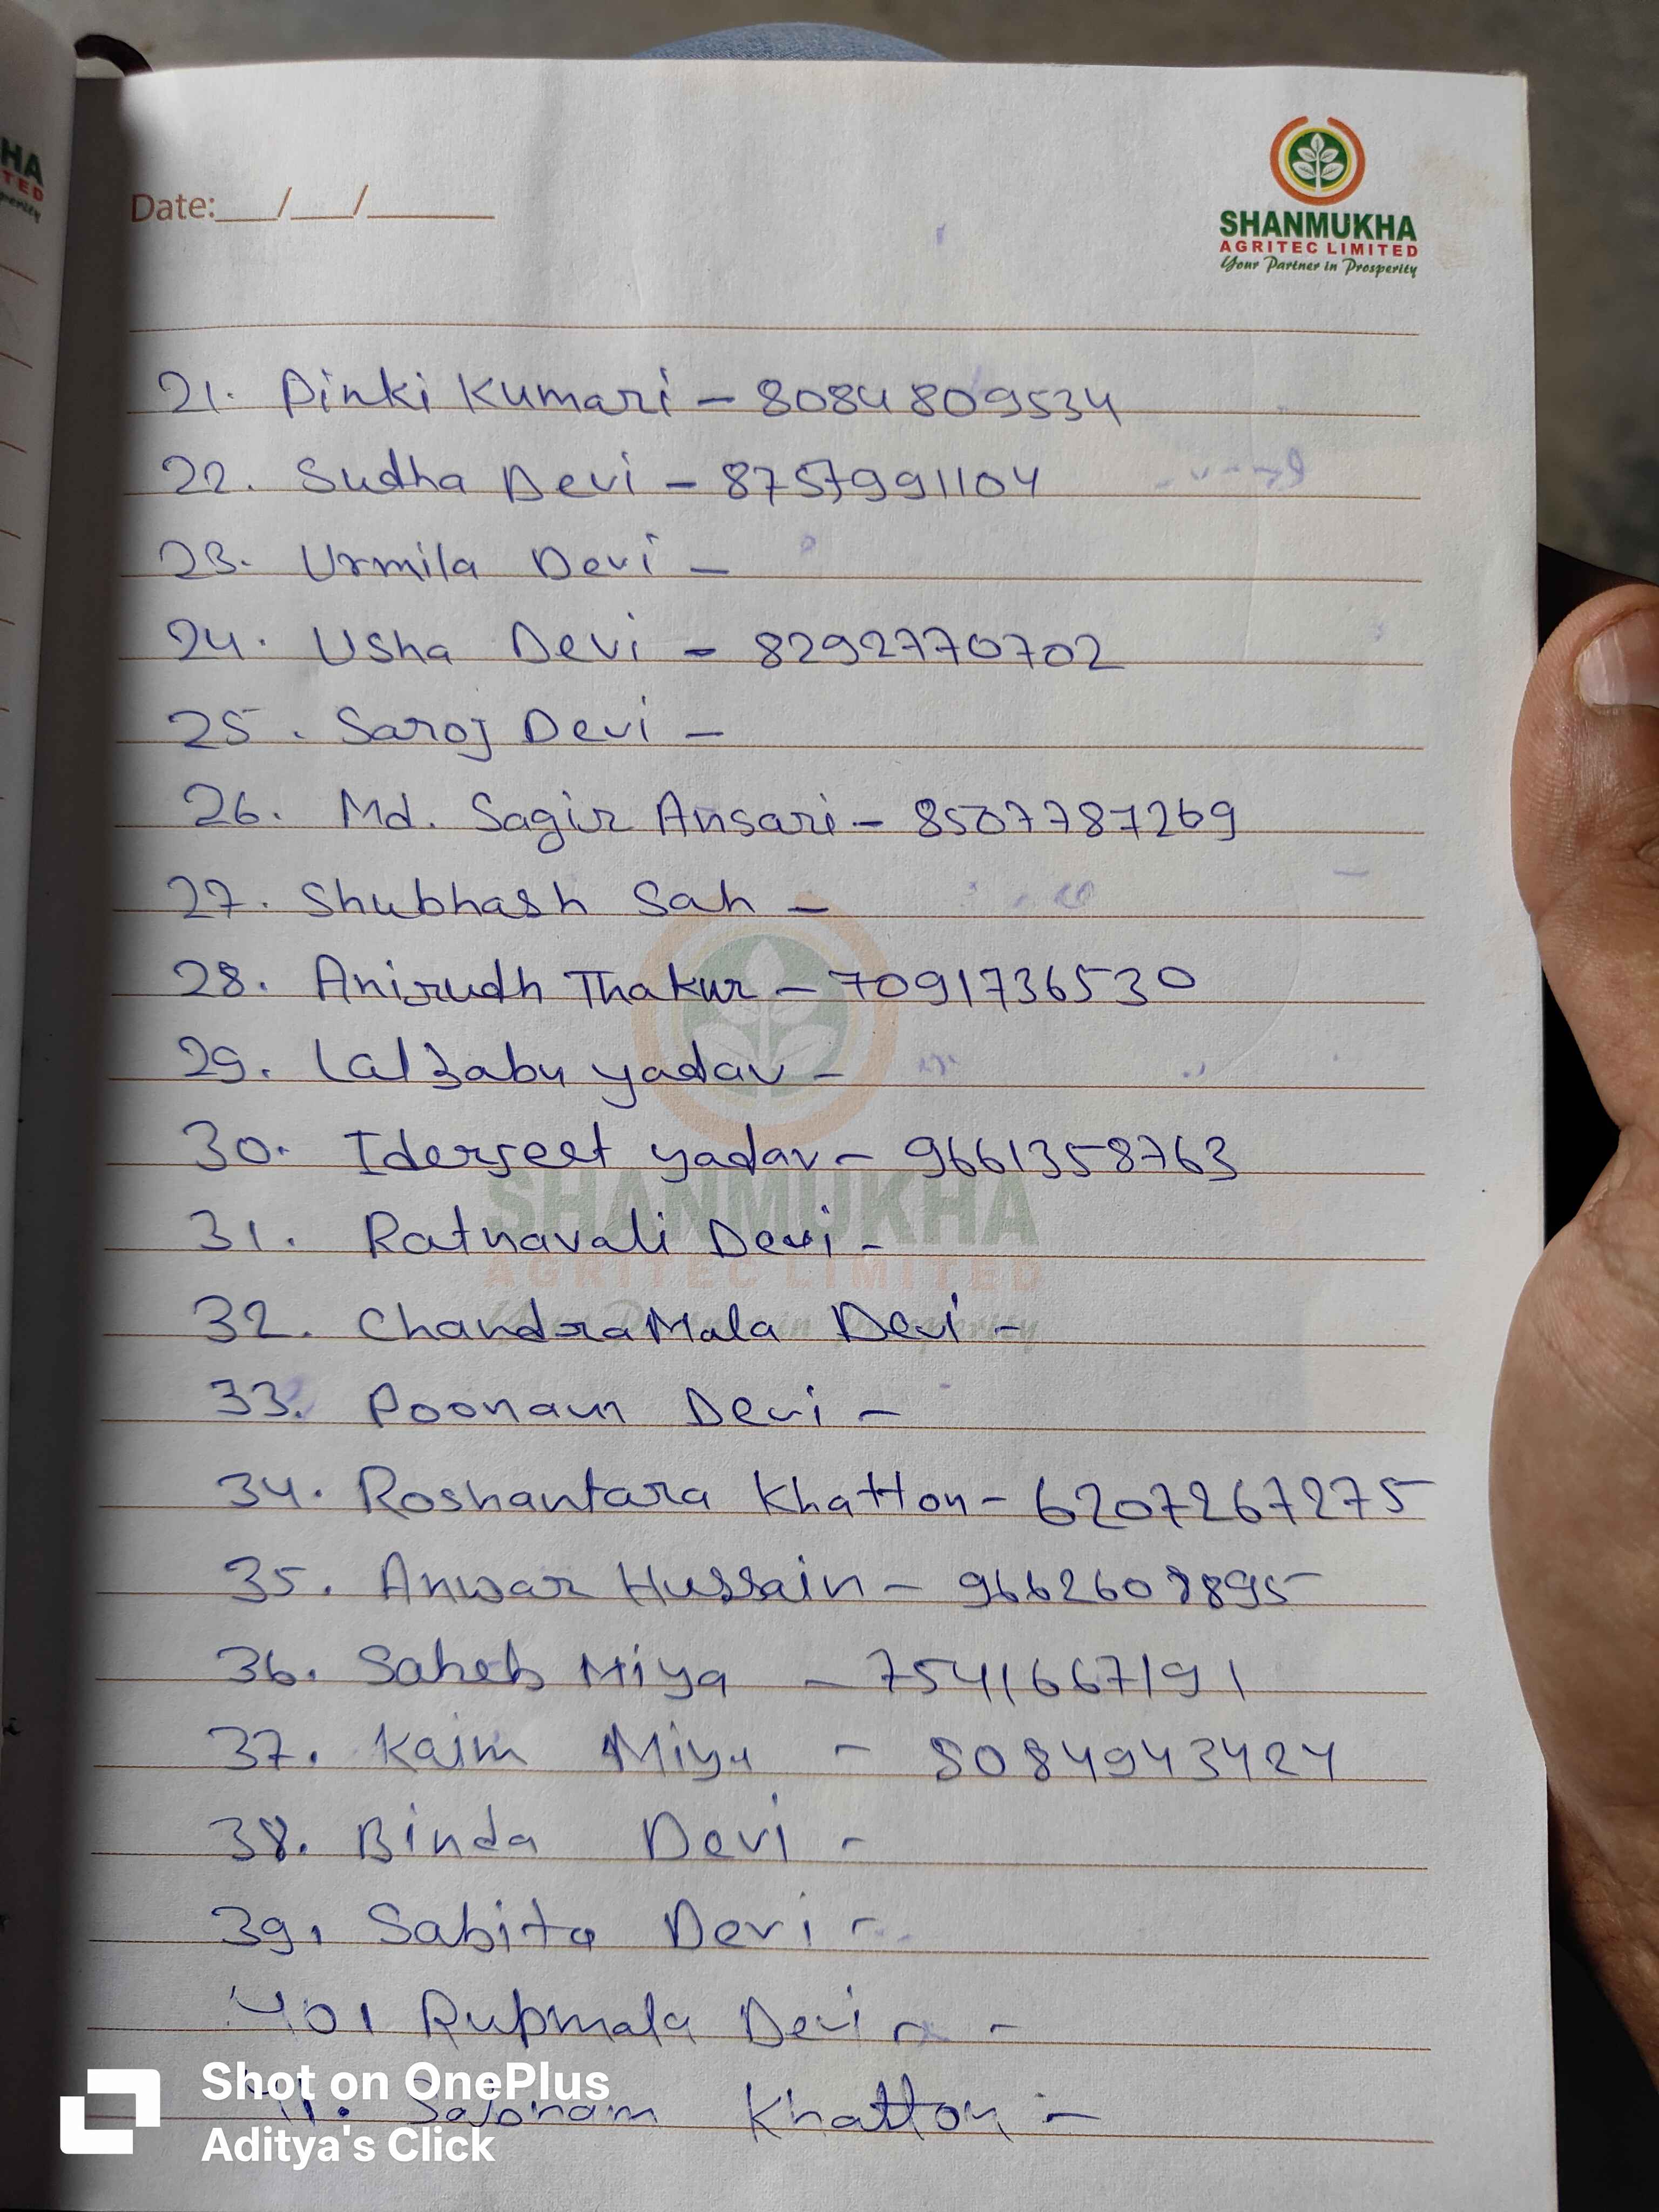 HA
TED
perity
Date:___/___/______
SHANMUKHA
AGRITEC LIMITED
Your Partner in Prosperity
21. Pinki Kumari - 8084809534
22. Sudha Devi - 8757991104
23. Urmila Devi -
24. Usha Devi - 8292770702
25. Saroj Devi -
26. Md. Sagir Ansari - 8507787269
27. Shubhash Sah -
28. Anirudh Thakur - 7091736530
29. Lal Babu yadav -
30. Iderjeet yadav - 9661358763
31. Ratnavali Devi -
32. ChandraMala Devi -
33. Poonam Devi -
34. Roshantara Khatton - 6207267275
35. Anwar Hussain - 
36. Saheb Miya - 7541667191
37. Kaim Miya - 8084943424
38. Binda Devi -
39. Sabita Devi -
40. Rupmala Devi - -
41. Sabnam Khatton -
SHANMUKHA
AGRITEC LIMITED
Shot on OnePlus
Aditya's Click